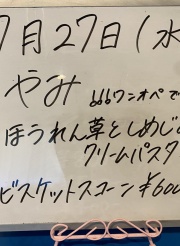 7月27日(水
やみ
ワンオペで
ほうれん草としめじ
クリームパスタ
ビスケットスコーン ¥600